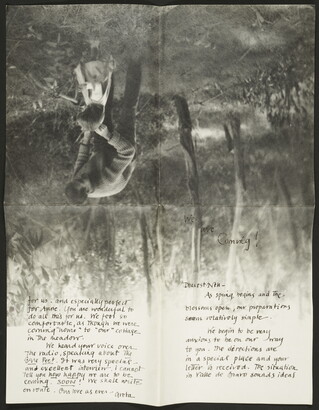 We
are
Coming!
Dearest Nin –
As spring begins and the
blossoms open, our preparations
seem relatively simple.
We begin to be very
anxious to be on our way
to you. The directions are
in a special place and your
letter is received. The situation
in Valle de Bravo sounds ideal
for us – and especially perfect
for Anne. You are wonderful to
do all this for us. We feel so
comfortable, as though we were
coming "home" to "our" cottage
in the meadow.
We heard your voice over
the radio, speaking about The
Five Poet. It was very special –
and excellent interview. I cannot
tell you how happy we are to be
coming. soon! We shall write
en route. Our love as ever –
Greta.